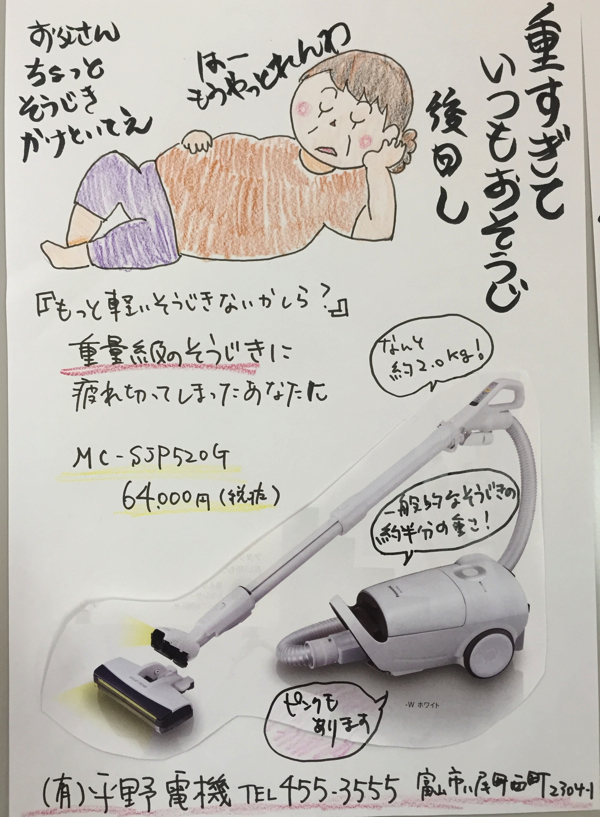 重すぎて
いつもおそうじ
後回し
お父さん
ちょっと
そうじき
かけといてえ
はー
もうやっとれんわ
『もっと軽いそうじきないかしら?』
重量級のそうじきに
疲れ切ってしまったあなたに
なんと
約2.0kg!
MC-SJP520G
64,000円(税抜)
一般的なそうじきの
約半分の重さ!
-W ホワイト
ピンクも
あります
(有)平野電機 TEL 455-3555 富山市八尾町西町2304-1